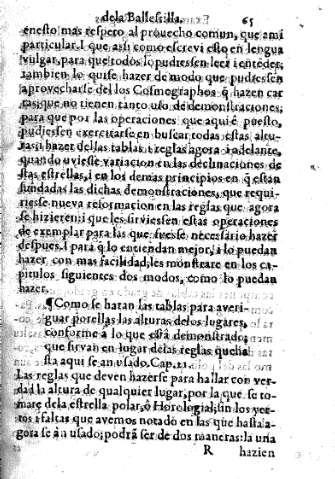 dela Ballestilla. 65
enesto mas respeto al provecho comun, que ami
particular. I que asi como escrevi esto en lengua
vulgar, para que todos lo pudiessen leer i enteder;
tambien lo quise hazer de modo que pudiessen
aprovecharse del los Cosmographos q̃ hazen car
tas, que no tienen tanto uso de demonstraciones;
para que por las operaciones que aqui è puesto,
pudiessen exercitarse en buscar todas estas altu-
ras: i hazer dellas tablas i reglas agora i adelante,
quando uviesse variacion en las declinaciones de
stas estrellas, i en los demas principios en q̃ están
fundadas las dichas demonstraciones, que requi-
riesse nueva reformacion en las reglas que agora
se hizieren: i que les sirviessen estas operaciones
de exemplar para las que fuesse necessario hazer
despues. I para q̃ lo entiendan mejor, i lo puedan
hazer con mas facilidad, les mostrare en los ca-
pitulos siguientes dos modos, como lo puedan
hazer.
¶Como se haran las tablas para averi-
guar por ellas las alturas delos lugares,
conforme a lo que està demonstrado;
que sirvan en lugar delas reglas que ha
sta aqui se an usado. Cap. 21.
Las reglas que deven hazerse para hallar con ver-
dad la altura de qualquier lugar, por la que se to-
mare dela estrella polar, ò Horologial; sin los yer-
ros i faltas que avemos notado en las que hasta a-
gora se an usado; podrã ser de dos maneras: la una
R hazien